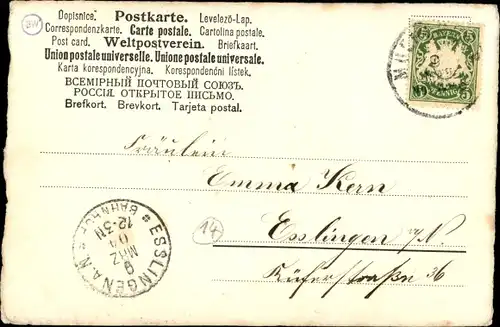 Dopisnice. Postkarte. Levelező-Lap.
Correspondenzkarte. Carte postale. Cartolina postale.
Post card. Weltpostverein. Briefkaart.
Union postale universelle. Unione postale universale.
Karta korespondencyjna. Korespondenční lístek.
ВСЕМІРНЫЙ ПОЧТОВЫЙ СОЮЗЪ.
РОССІЯ ОТКРЫТОЕ ПИСЬМО.
Brefkort. Brevkort. Tarjeta postal.
Fräulein
Emma Kern
Esslingen a/N.
Küferstraße 36
14
ESSLINGEN A.N.
BAHNHOF
9
MRZ
04
12-3N
BAYERN
5 5
5 5